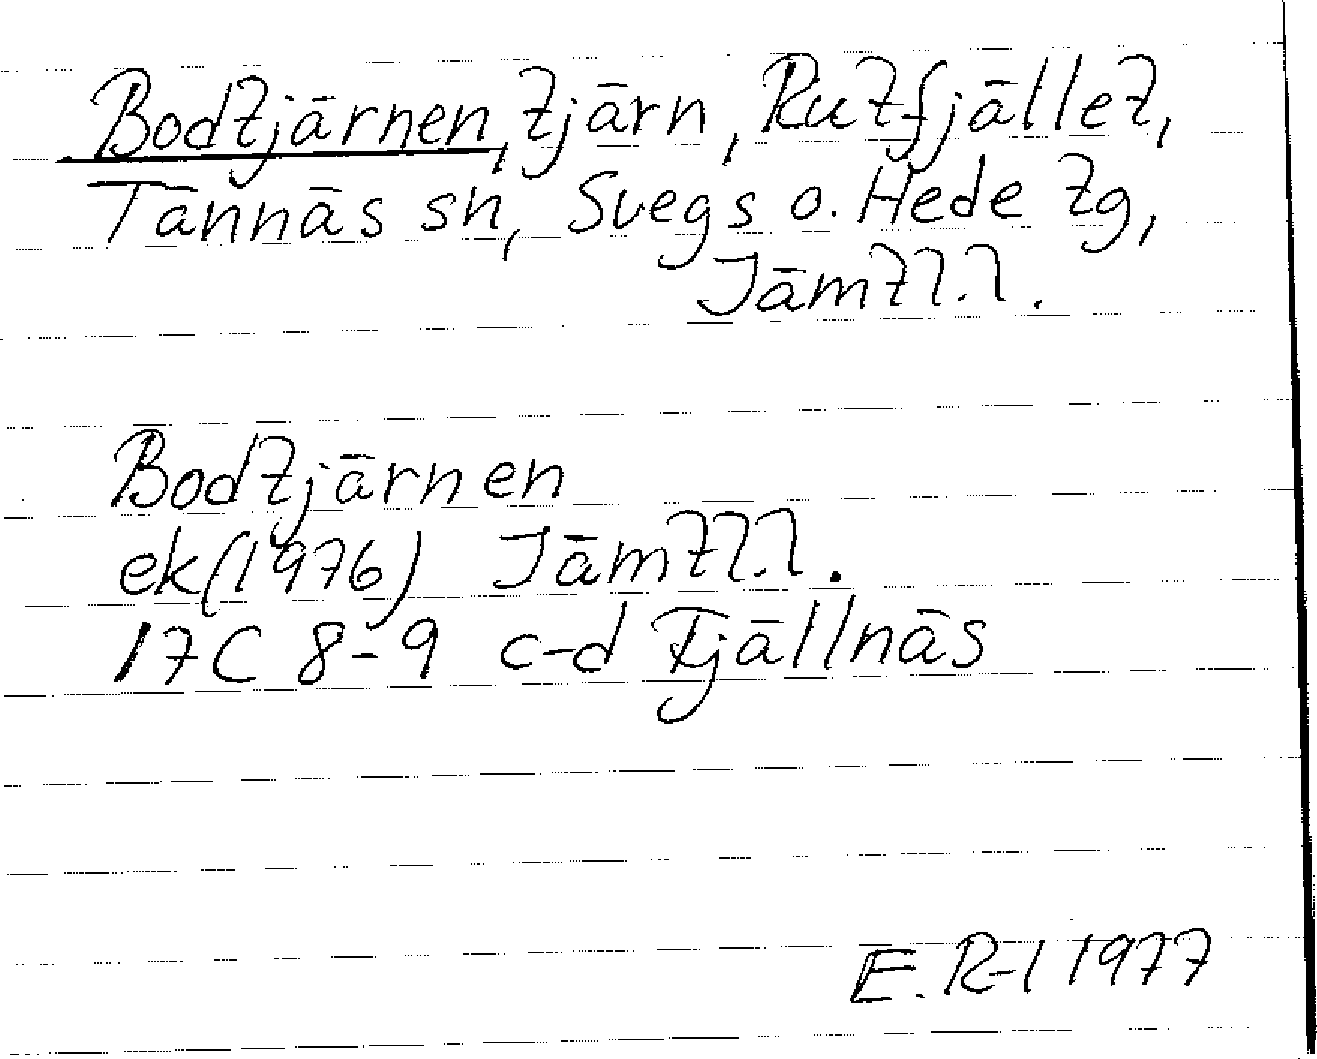 Bodtjärnen, tjärn, Rutfjället,
Tännäs sn, Svegs o. Hede tg,
Jämtl.l.
Bodtjärnen
ek(1976) Jämtl.l.
17C 8-9 c-d Fjällnäs
E. R-l 1977